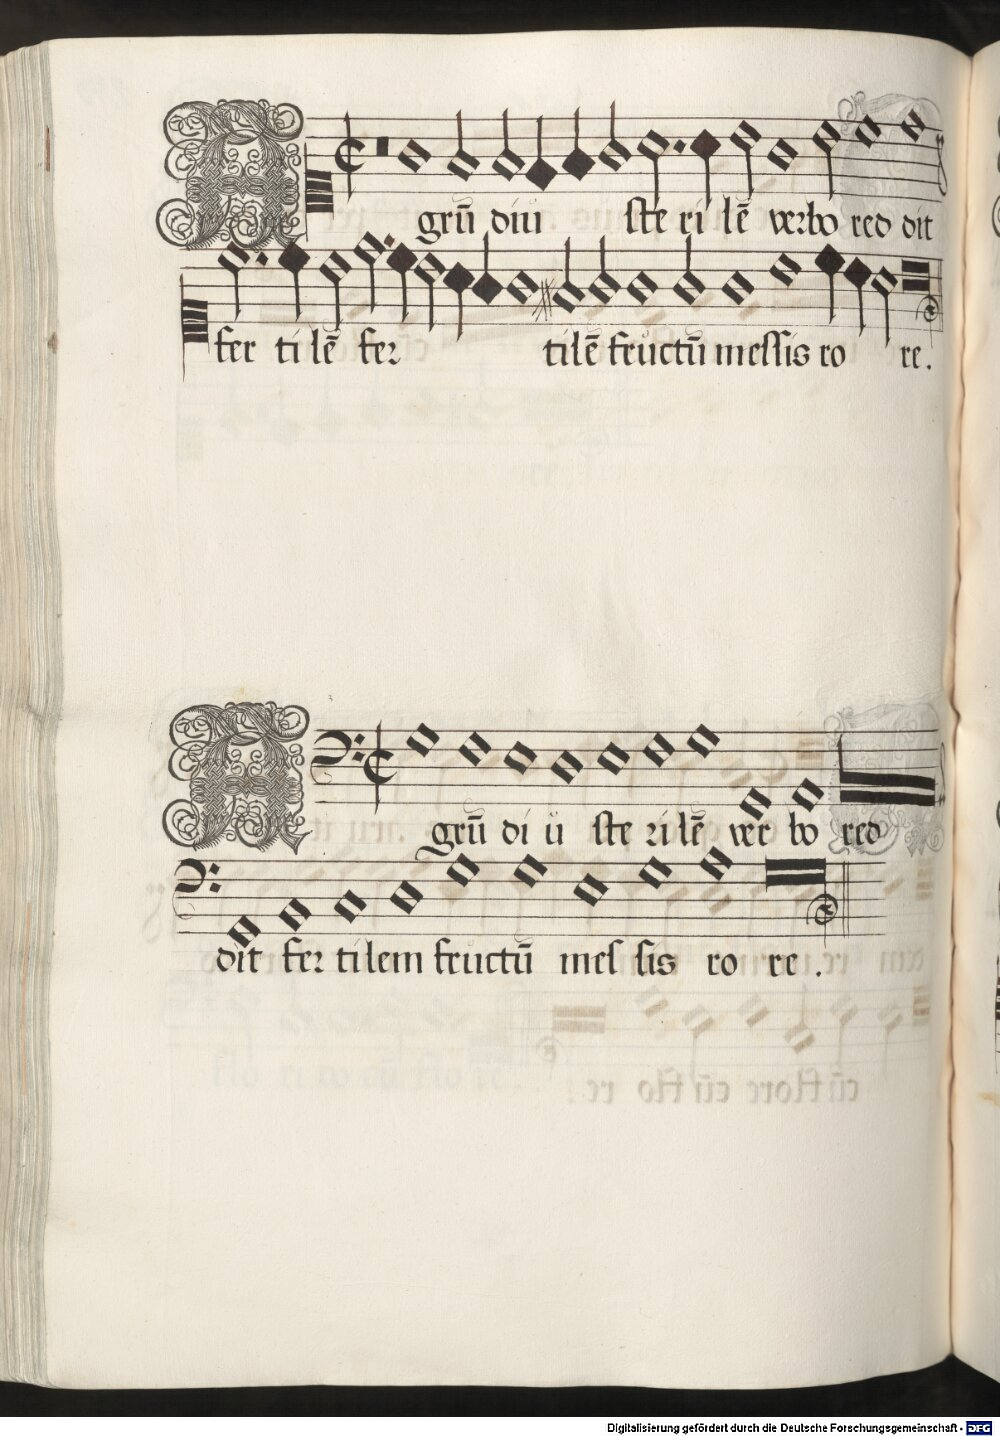 Agrū diu ste ri lē verbo red dit
fer ti lē fer tilē fructū messis ro re.
Agrū di u ste ri lē ver bo red
dit fer tilem fructū mes sis ro re.
Digitalisierung gefördert durch die Deutsche Forschungsgemeinschaft - DFG